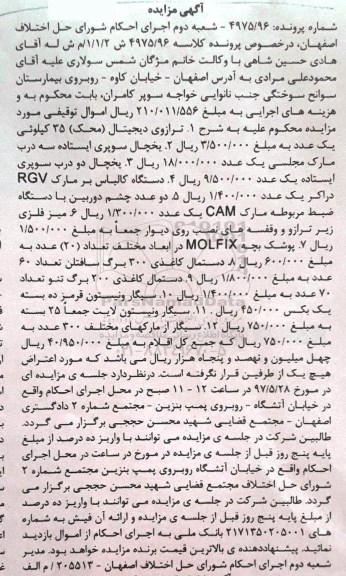 آگهی مزایده
شماره پرونده: ۴۹۷۵/۹۶ - شعبه دوم اجرای احکام شورای حل اختلاف
اصفهان، درخصوص پرونده کلاسه ۴۹۷۵/۹۶ ش ۱/۱/۲/م ش له آقای
هادی حسین شاهی با وکالت خانم مژگان شمس سولاری علیه آقای
محمودعلی مرادی به آدرس اصفهان - خیابان کاوه - روبروی بیمارستان
سوانح سوختگی جنب نانوایی خواجه سوپر کامران، بابت محکوم به و
هزینه های اجرایی به مبلغ ۲۱۰/۰۱۱/۵۵۶ ریال اموال توقیفی مورد
مزایده محکوم علیه به شرح ۱. ترازوی دیجیتال (محک) ۳۵ کیلوئی
یک عدد به مبلغ ۳/۵۰۰/۰۰۰ ریال ۲. یخچال سوپری ایستاده سه درب
مارک مجلسی یک عدد ۱۸/۰۰۰/۰۰۰ ریال ۳. یخچال دو درب سوپری
ایستاده یک عدد ۹/۵۰۰/۰۰۰ ریال ۴. دستگاه کالباس بر مارک RGV
دراکر یک عدد ۱/۴۰۰/۰۰۰ ریال ۵. دو عدد چشم دوربین با دستگاه
ضبط مربوطه مارک CAM یک عدد ۱/۳۰۰/۰۰۰ ریال ۶. میز فلزی
زیر ترازو و وقفسه های پمپ روی دیوار جمعاً به مبلغ ۱/۵۰۰/۰۰۰
ریال ۷. پوشک بچه MOLFIX در ابعاد مختلف تعداد (۲۰) عدد به
مبلغ ۶۰۰/۰۰۰ ریال ۸. دستمال کاغذی ۳۰۰ برگ سافتلن تعداد ۶۰
عدد به مبلغ ۱/۸۰۰/۰۰۰ ریال ۹. دستمال کاغذی ۲۰۰ برگ تنو تعداد
۷۰ عدد به مبلغ ۱/۴۰۰/۰۰۰ ریال ۱۰. سیگار وینستون قرمز ده بسته
یک بکس ۴۵۰/۰۰۰ ریال . ۱۱. سیگار وینستون لایت جمعاً ۲۵ بسته
به مبلغ ۷۵۰/۰۰۰ ریال ۱۲. سیگار از مارکهای مختلف ۳۰۰ عدد به
مبلغ ۷۵۰/۰۰۰ ریال که جمع کل اقلام به مبلغ ۴۰/۹۵۰/۰۰۰ ریال
چهل میلیون و نهصد و پنجاه هزار ریال می باشد که مورد اعتراض
هیچ یک از طرفین قرار نگرفته است. درنظردارد جلسه ی مزایده ای
در مورخ ۹۷/۵/۲۸ در ساعت ۱۲ - ۱۱ صبح در محل اجرای احکام واقع
در خیابان آتشگاه - روبروی پمپ بنزین - مجتمع شماره ۲ دادگستری
اصفهان - مجتمع قضایی شهید محسن حججی برگزار می گردد.
طالبین شرکت در جلسه ی مزایده می توانند با واریز ده درصد از مبلغ
پایه پنج روز قبل از جلسه ی مزایده در مورخ در ساعت در محل اجرای
احکام واقع در خیابان آتشگاه روبروی پمپ بنزین مجتمع شماره ۲
شورای حل اختلاف مجتمع قضایی شهید محسن حججی برگزار می
گردد. طالبین شرکت در جلسه ی مزایده می توانند با واریز ده درصد
از مبلغ پایه پنج روز قبل از جلسه ی مزایده و ارائه آن فیش به شماره
۲۱۷۱۳۵۰۲۰۵۰۰۱ بانک ملی به اجرای احکام از اموال بازدید
نمائید. پیشنهاددهنده ی بالاترین قیمت برنده مزایده خواهد بود. مدیر
شعبه دوم اجرای احکام شورای حل اختلاف اصفهان - ۲۰۵۵۱۳ / م الف